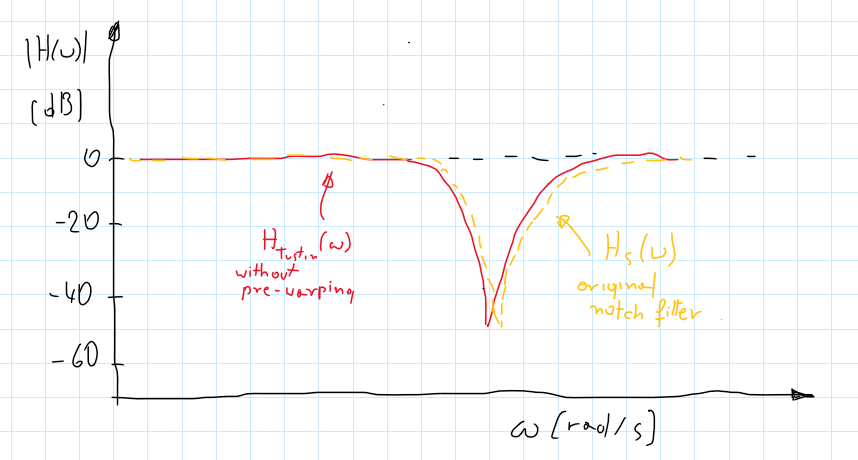 |H(ω)|
[dB]
0
-20
-40
-60
H_Tustin(ω)
without
pre-warping
H_s(ω)
original
notch filter
ω [rad/s]